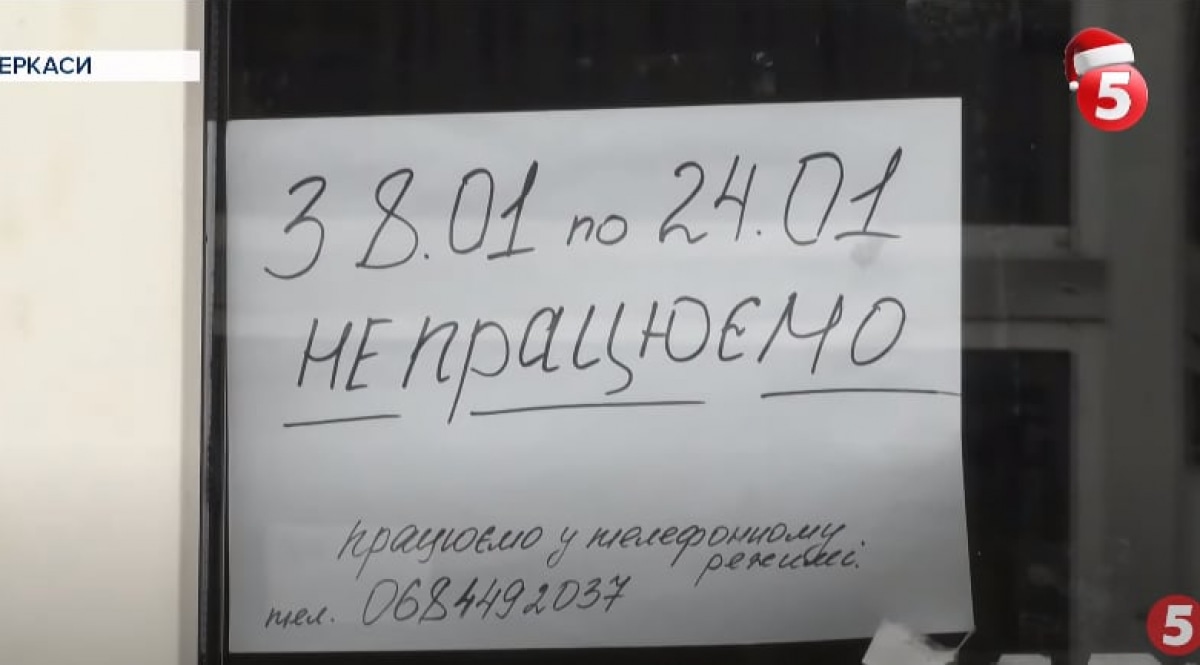 ЕРКАСИ
5
З 8.01 по 24.01
НЕ ПРАЦЮЄМО
працюємо у телефонному
режимі.
тел. 0684492037
5